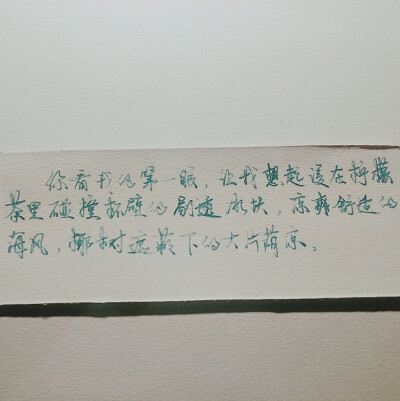 你看我的第一眼，让我想起溶在柠檬
茶里碰撞杯壁的剔透冰块，凉爽舒适的
海风，椰树遮蔽下的大片荫凉。